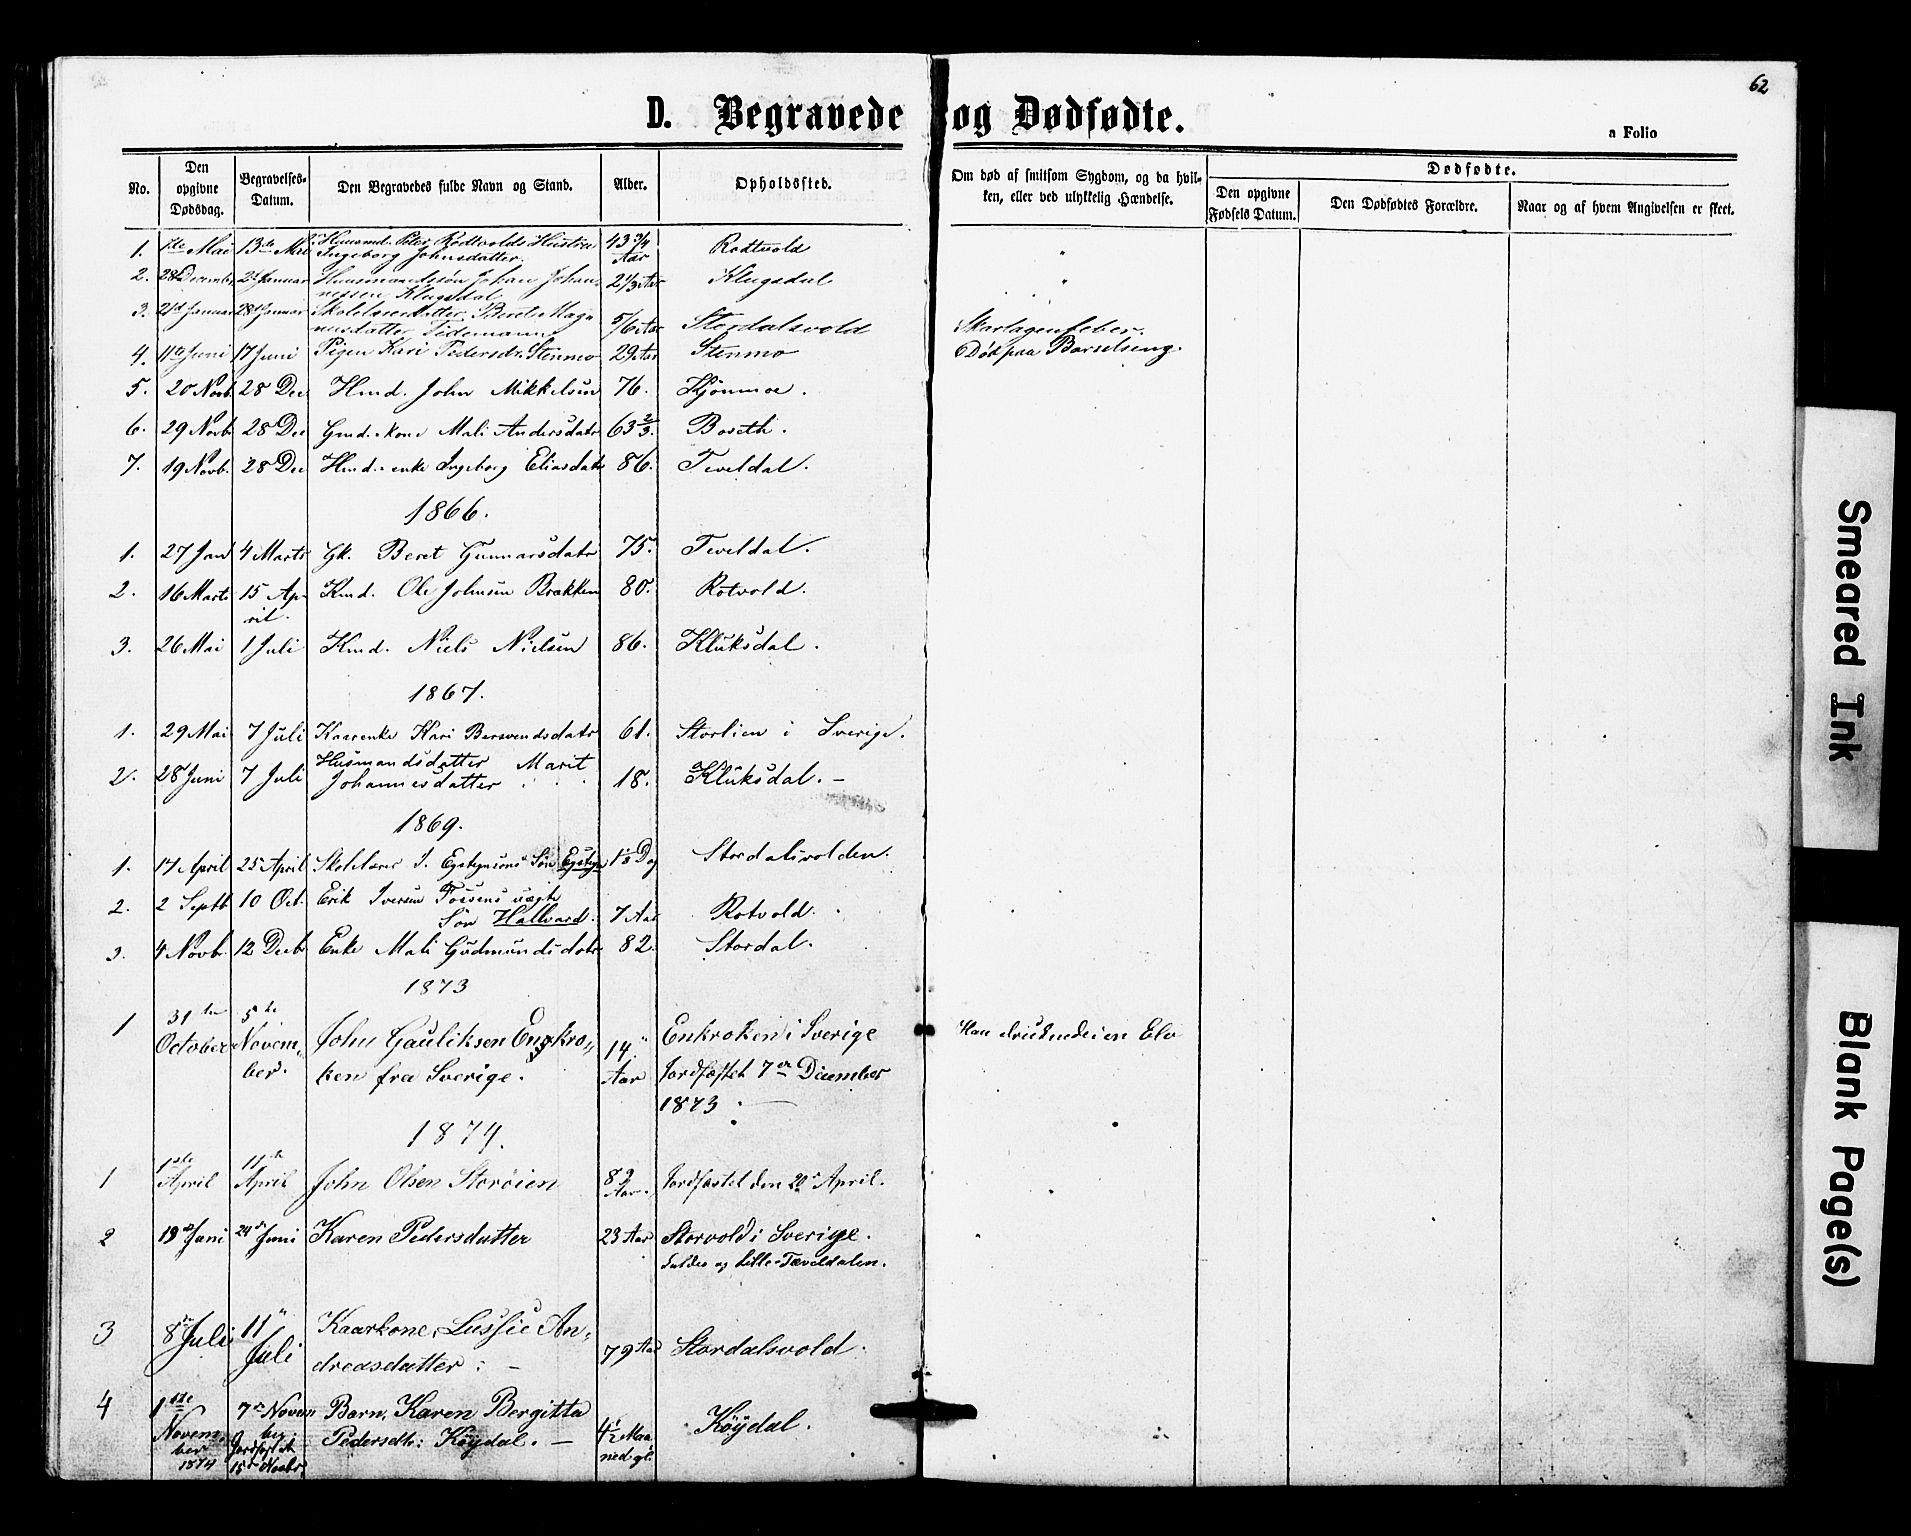 62
D. Begravede og Dødfødte.
a Folio
No.
Den opgivne Dødsdag.
Begravelses-Datum.
Den Begravedes fulde Navn og Stand.
Alder.
Opholdssted.
Om død af smitsom Sygdom, og da hvilken, eller ved ulykkelig Hændelse.
Dødfødte.
Den opgivne Fødsels Datum.
Den Dødfødtes Forældre.
Naar og af hvem Angivelsen er skeet.
1. 1ste Mai 13de Mai Huusmd. Peter Rodtvolds Hustru 43 3/4 Rodtvold
Ingeborg Johnsdatter. Aar
2. 28 December 2d Januar Huusmandssøn Johan Johan- 2 1/3 Aar Klugsdal
nessen Klugsdal
3. 21d Januar 28d Januar Skolelærerdatter Beret Mag- 5/6 Aar Stordalsvold Skarlagenfeber.
nusdatter Tidemann
4. 11te Juni 17 Juni Pigen Kari Pedersdr. Stenmo 29 Aar Stenmo Død paa Barselseng.
5. 20 Novb. 28 Dec Hmd. John Mikkelsen 76. Kjønmoe.
6. 29 Novb. 28 Dec Gmd. kone Mali Andersdatr 63 2/3. Boseth.
7. 19 Novb. 28 Dec Hmd. enke Ingeborg Eliasdatr 86. Tveldal.
1866.
1. 27 Jan 4 Marts Gk. Beret Gunnarsdatr 75. Tveldal.
2. 16 Marts 15 Ap- Kmd. Ole Johnsen Brækken 80. Rotvold.
ril.
3. 26 Mai 1 Juli Kmd. Niels Nielsen 86. Kluksdal.
1867.
1. 29 Mai 7 Juli Kaarenke Kari Bersvendsdatr 61. Storlien i Sverige.
2. 28 Juni 7 Juli Husmandsdatter Marit 18. Kluksdal. –
Johannesdatter
1869.
1. 17 April 25 April Skolelærer I. Eystynsøns Søn Eystyn 1/8 Dag Stordalsvolden.
2. 2 Septb 10 Oct. Erik Iversen Fossens uægte
Søn Hallvard. 7 Aar Rotvold.
3. 4 Novb. 12 Decb Enke Mali Gudmundsdatr 82. Stordal.
1873
1 31te 5te
October Novem- John Gauliksen Enkro- 14 Enkroken i Sverige Han druknede i en Elv
ber. ken fra Sverige. Aar Jordfæstet 7de December
1873.
1874.
1 1ste April 11te April John Olsen Storøien 82 Aar. Jordfæstet den 20de April.
2 19de Juni 24de Juni Karen Pedersdatter 23 Aar Storvold i Sverige.
og Lille-Tæveldalen.
3 8de Juli 11te Kaarkone, Lussie An-
Juli dreasdatter: – 79 Aar Stordalsvold.
4 1ste 7de Novem Barn, Karen Bergitta
Novem- ber. Pedersdtr: Køydal. – 4 1/2 Maa- Køydal.
ber Jordfæstet
1874 15de Novbr. ned gl.
Smeared Ink
Blank Page(s)